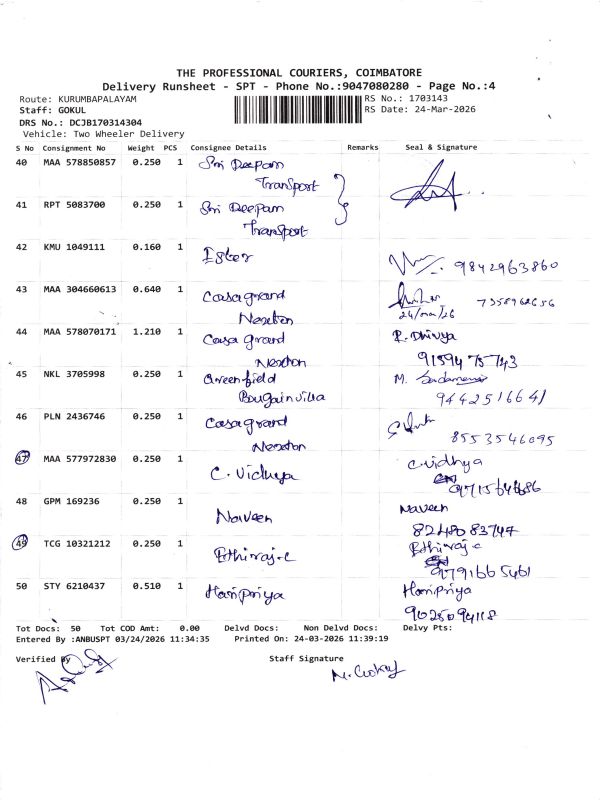 THE PROFESSIONAL COURIERS, COIMBATORE
Delivery Runsheet - SPT - Phone No.:9047080280 - Page No.:4
Route: KURUMBAPALAYAM RS No.: 1703143
Staff: GOKUL RS Date: 24-Mar-2026
DRS No.: DCJB170314304
Vehicle: Two Wheeler Delivery
S No Consignment No Weight PCS Consignee Details Remarks Seal & Signature
40 MAA 578850857 0.250 1 Sri Deepam
Transport
41 RPT 5083700 0.250 1 Sri Deepam
Transport
42 KMU 1049111 0.160 1
9842963860
43 MAA 304660613 0.640 1 Casagrand
24/mar/26
Nexton
44 MAA 578070171 1.210 1 Casagrand R. Dhivya
Nexton 91594 75743
45 NKL 3705998 0.250 1 Greenfield M.
Bougainvilla 9442516641
46 PLN 2436746 0.250 1 Casagrand
Nexton 8553546095
47 MAA 577972830 0.250 1 C. Vidhya C.vidhya
48 GPM 169236 0.250 1 Naveen Naveen
82480 83744
49 TCG 10321212 0.250 1 Ethiraj.c Ethiraj.c
97916 65461
50 STY 6210437 0.510 1 Haripriya Haripriya
9025094118
Tot Docs: 50 Tot COD Amt: 0.00 Delvd Docs: Non Delvd Docs: Delvy Pts:
Entered By :ANBUSPT 03/24/2026 11:34:35 Printed On: 24-03-2026 11:39:19
Verified By Staff Signature